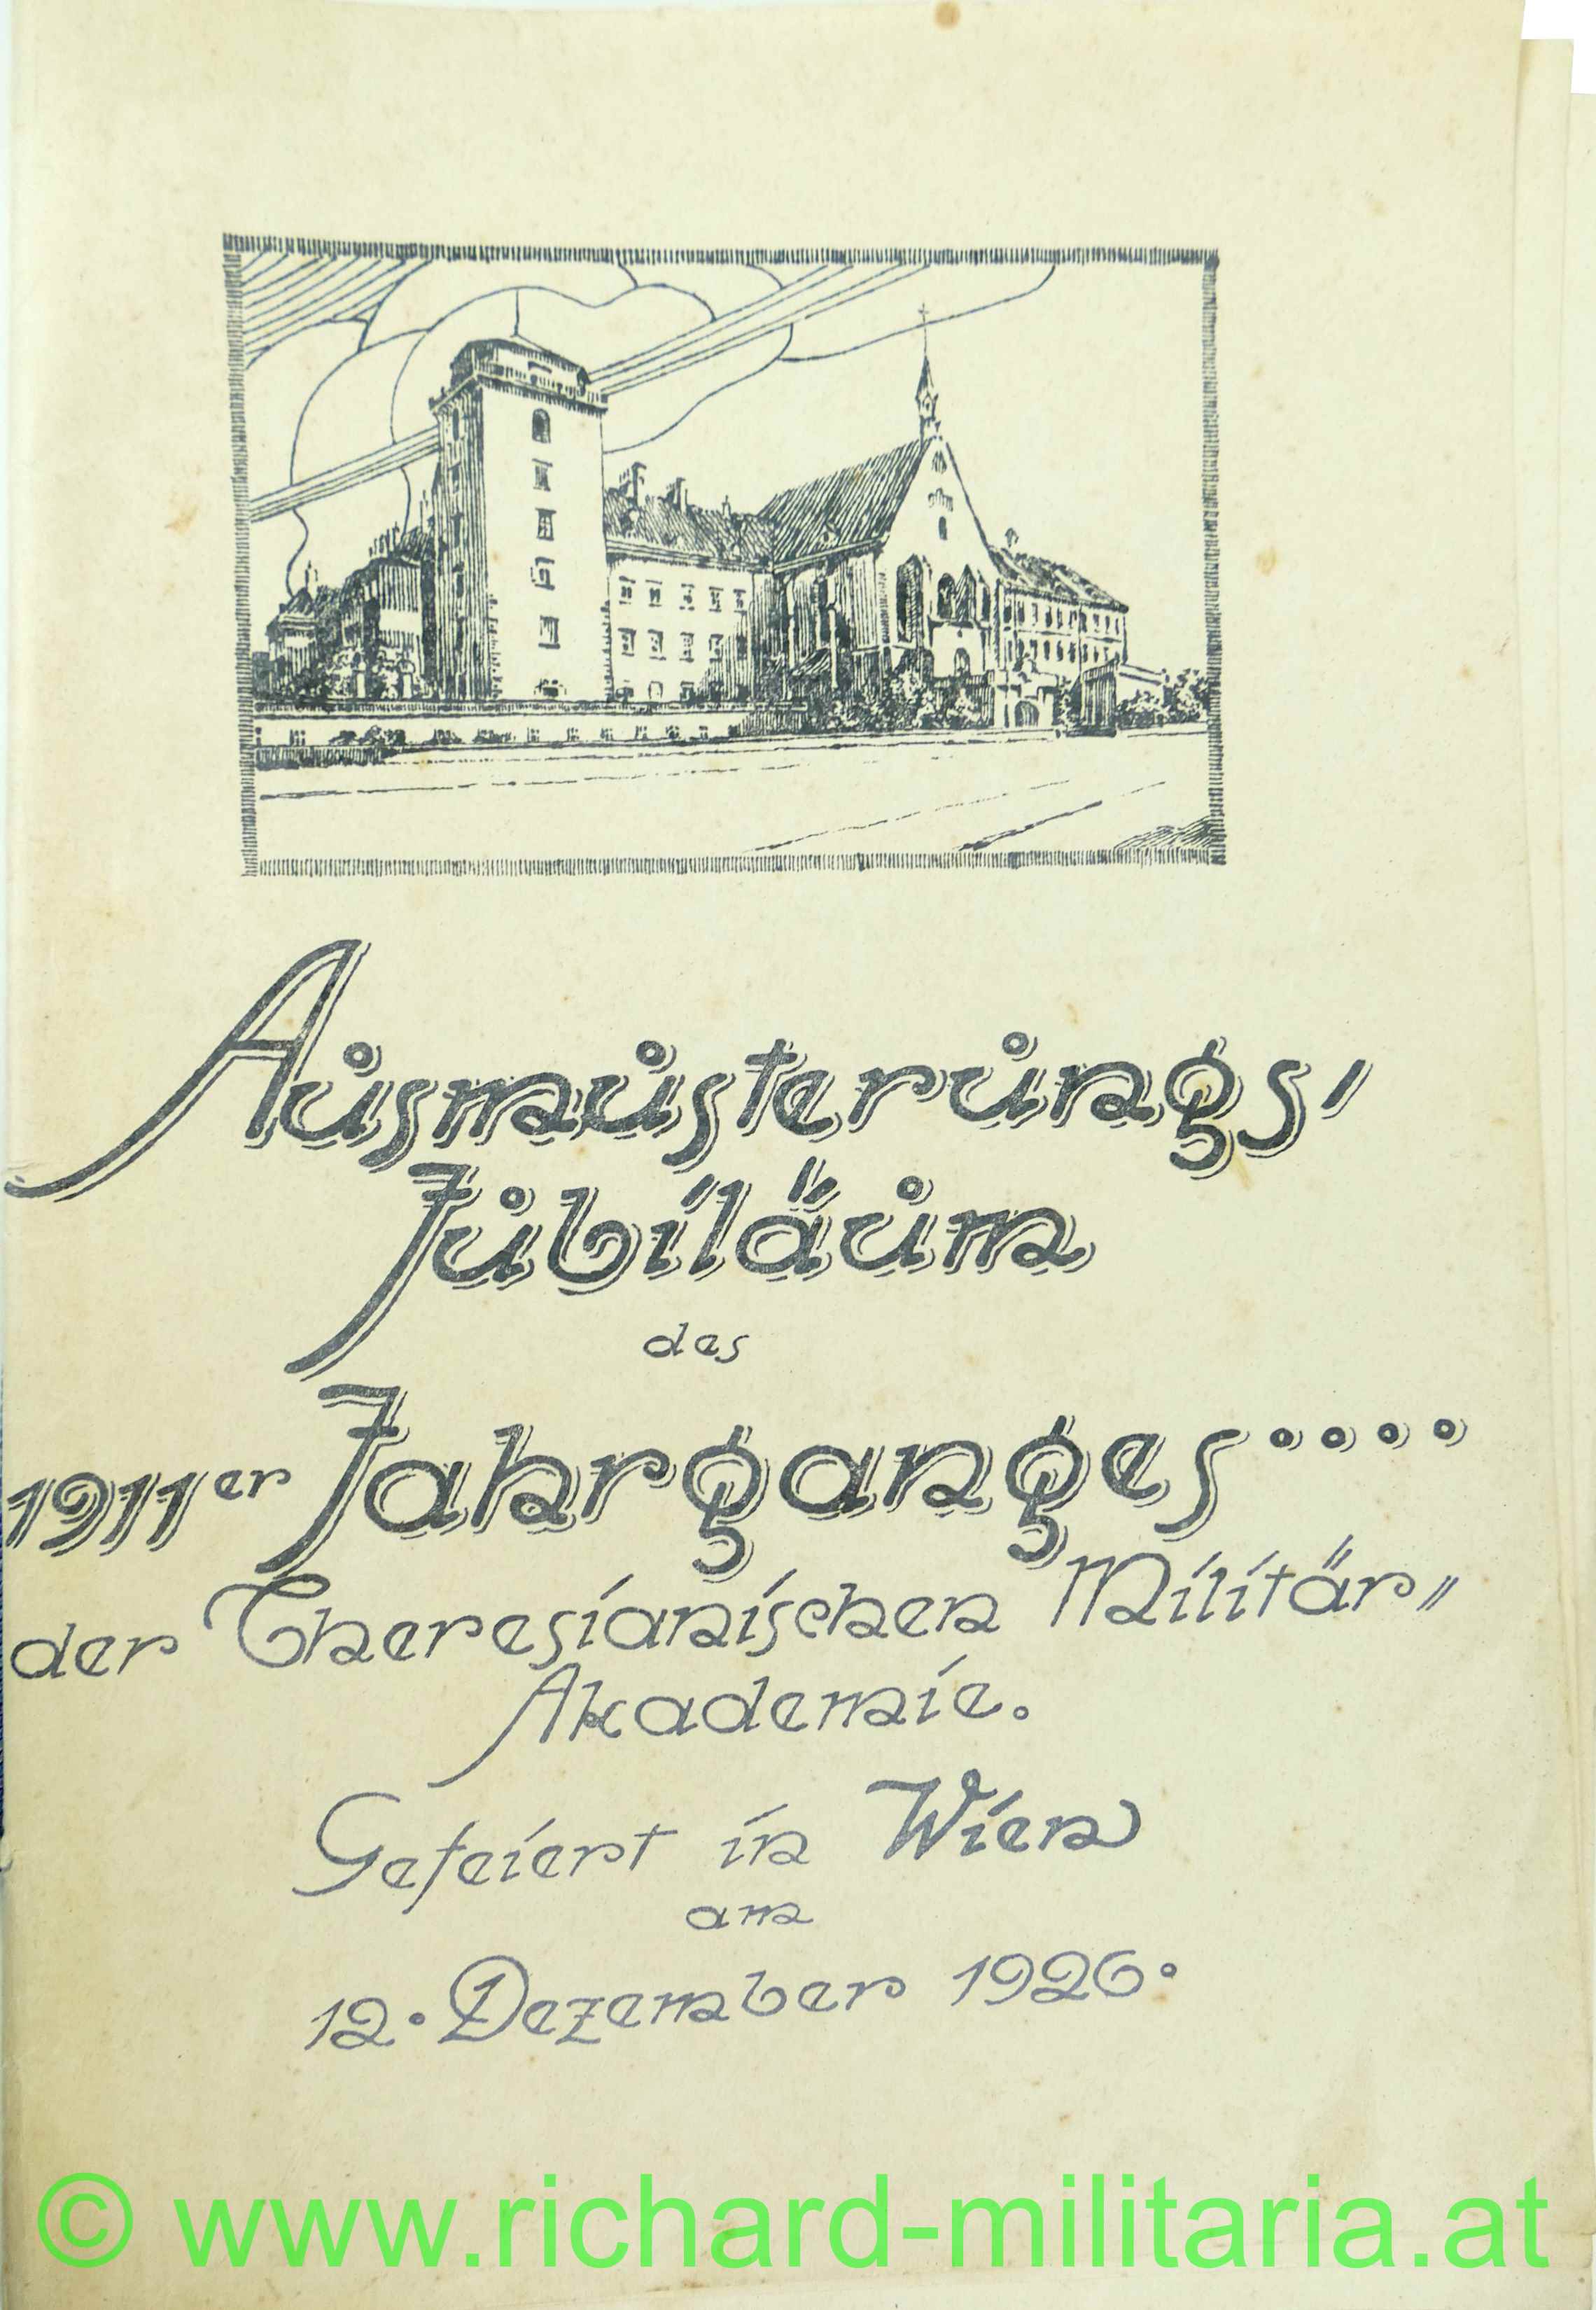 Ausmusterungs-
Jubiläum
des
1911er Jahrganges....
der Theresianischen Militär-
Akademie.
Gefeiert in Wien
am
12. Dezember 1926.
© www.richard-militaria.at